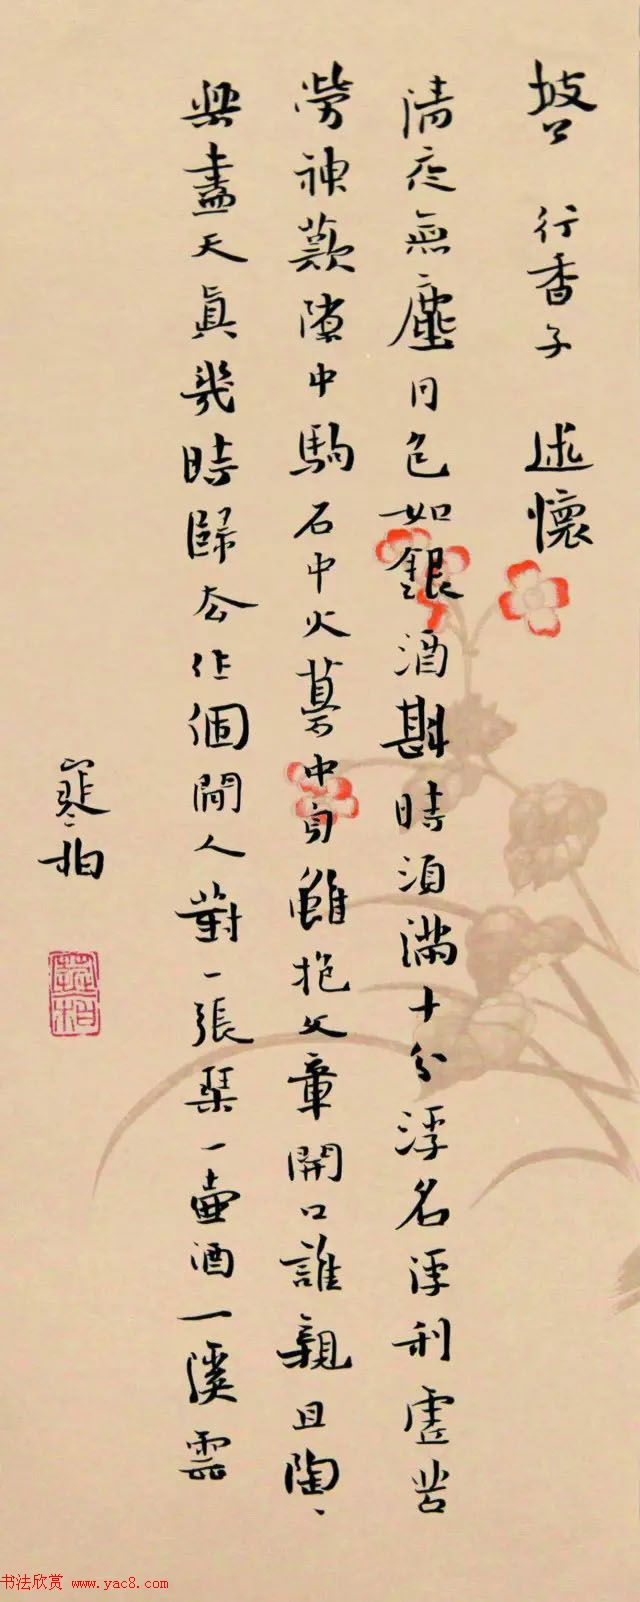 坡公 行香子 述懷
清夜無塵月色如銀酒斟時須滿十分浮名浮利虛苦
勞神歎隙中駒石中火夢中身雖抱文章開口誰親且陶、
樂盡天眞幾時歸去作個閒人對一張琴一壺酒一溪雲
书法欣赏 www.yac8.com